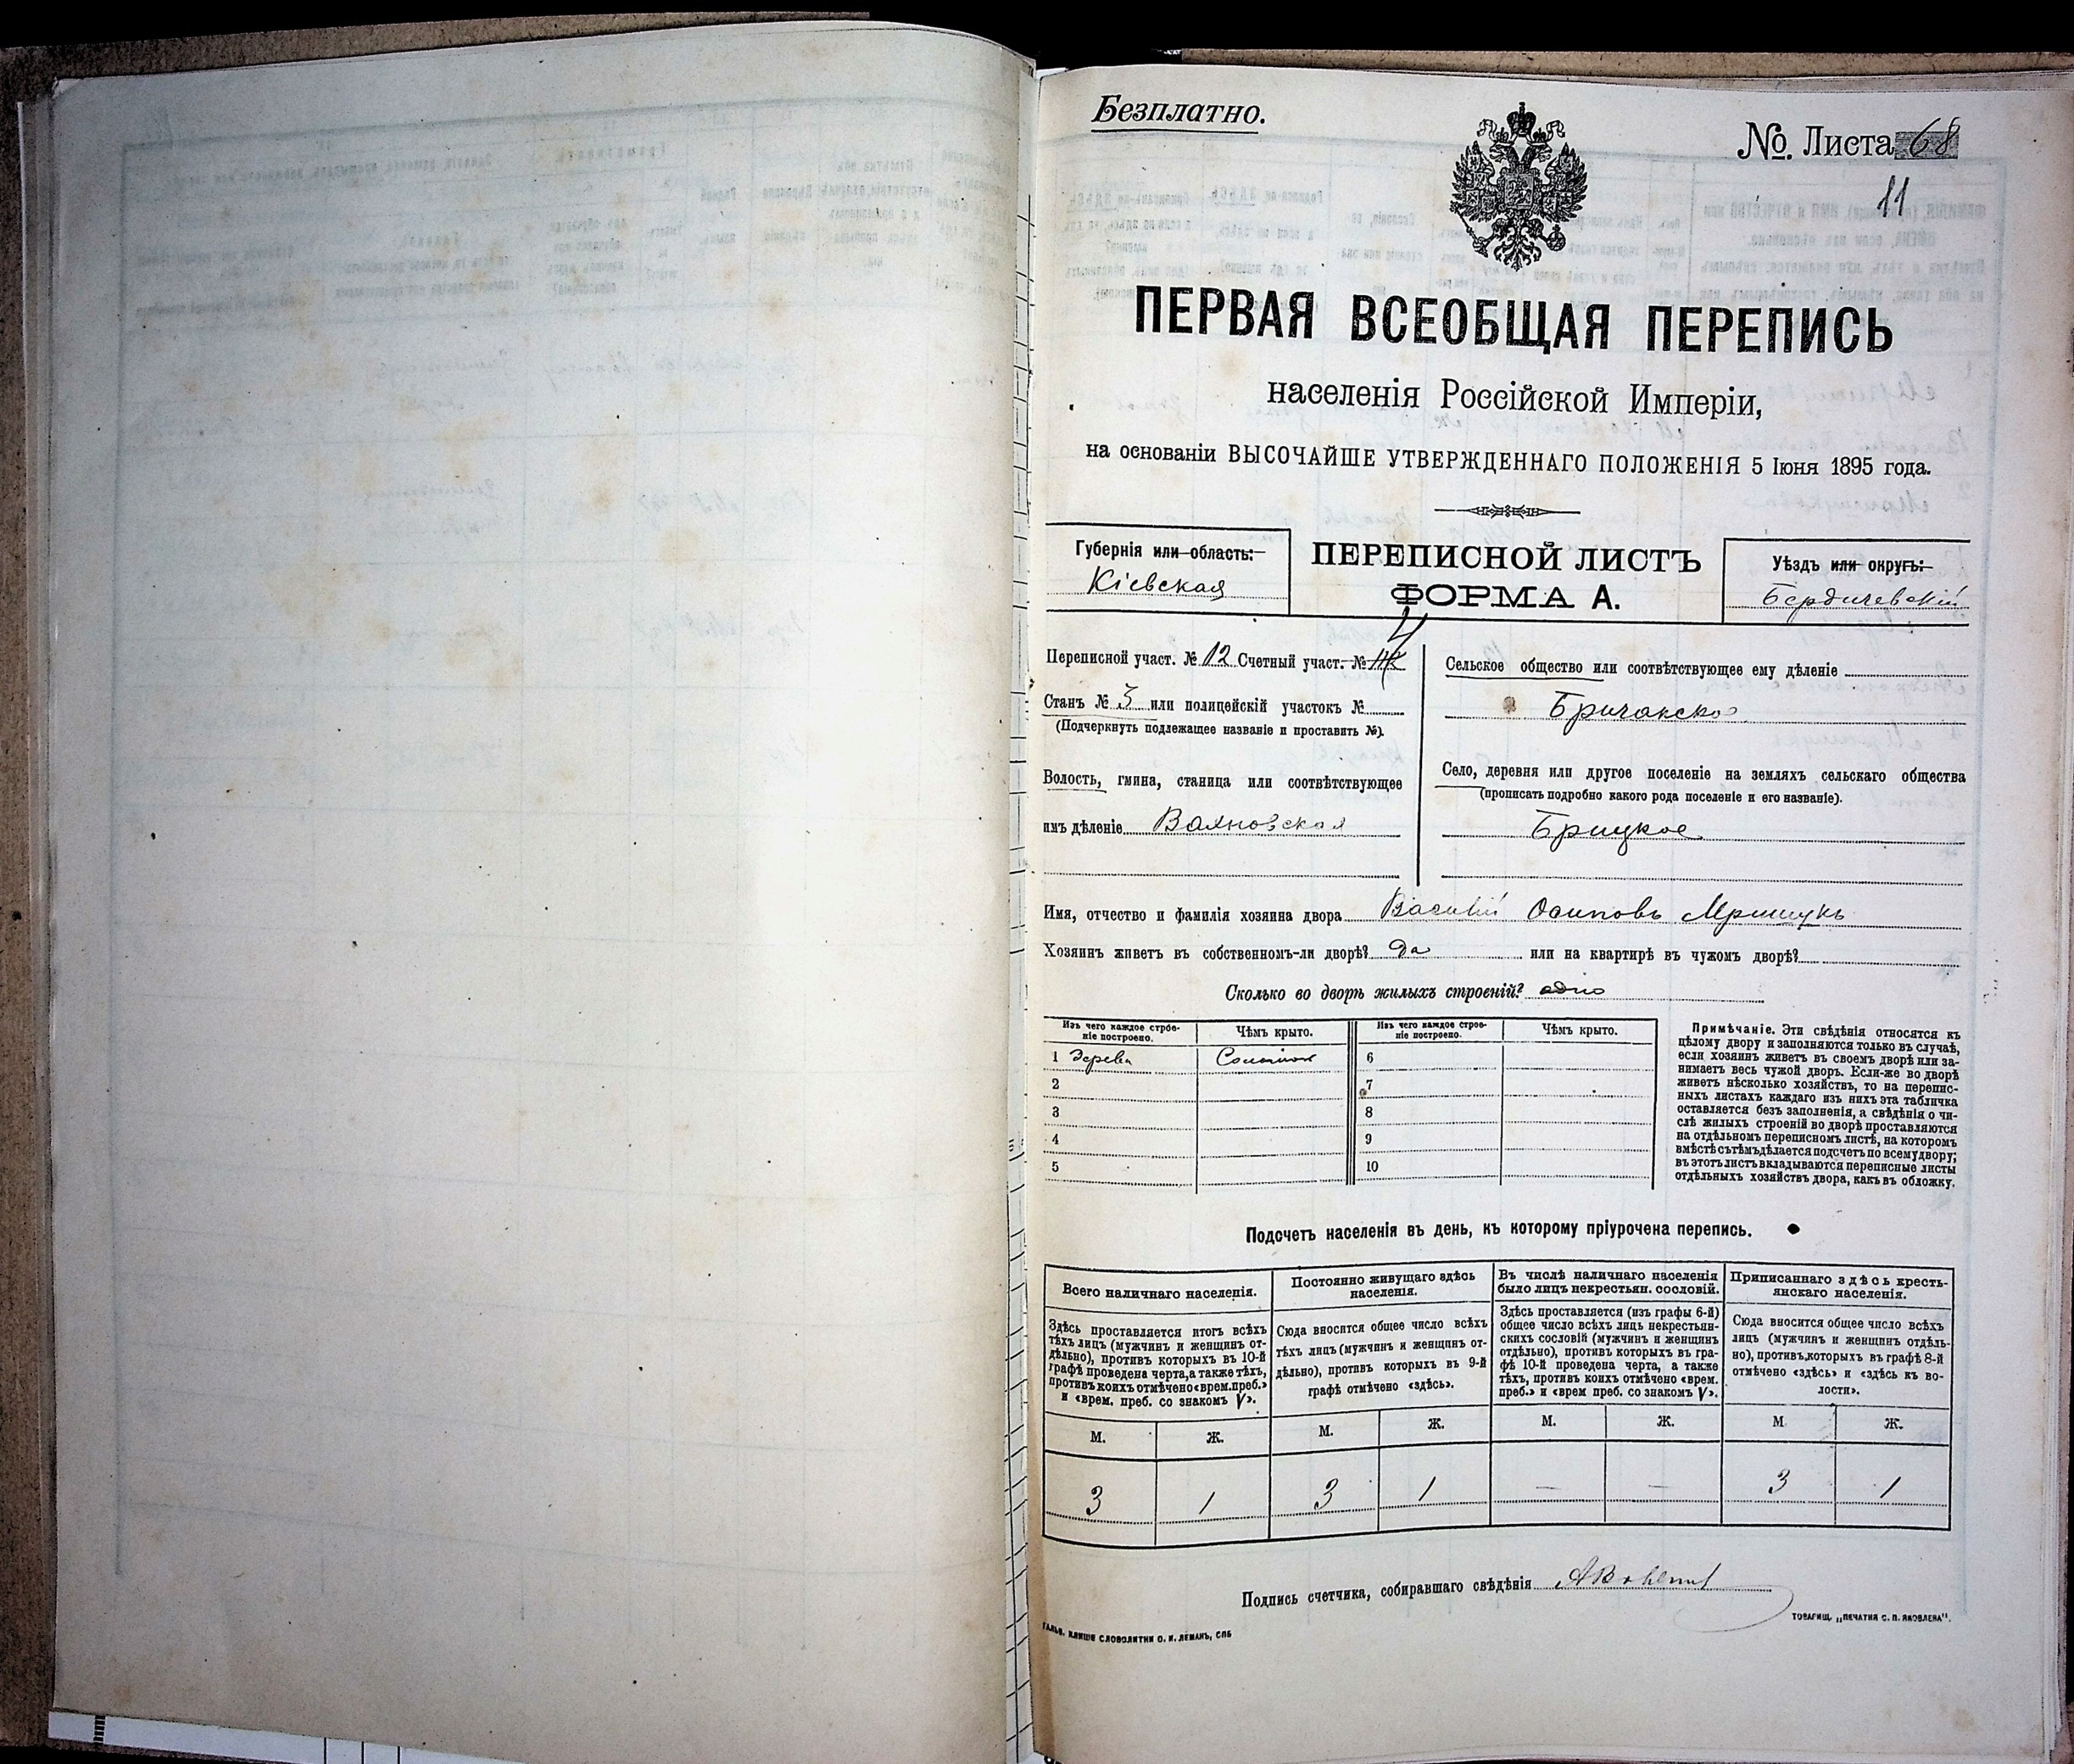 Безплатно.
№ Листа 68
11
ПЕРВАЯ ВСЕОБЩАЯ ПЕРЕПИСЬ
населенія Россійской Имперіи,
на основаніи ВЫСОЧАЙШЕ УТВЕРЖДЕННАГО ПОЛОЖЕНІЯ 5 Іюня 1895 года.
Губернія или область:
Кіевская
ПЕРЕПИСНОЙ ЛИСТЪ
ФОРМА А.
Уѣздъ или округъ:
Бердичевскій
Переписной участ. № 12 Счетный участ. № 4
Станъ № 3 или полицейскій участокъ №
(Подчеркнуть подлежащее названіе и проставить №).
Волость, гмина, станица или соотвѣтствующее
имъ дѣленіе
Сельское общество или соотвѣтствующее ему дѣленіе
Село, деревня или другое поселеніе на земляхъ сельскаго общества
(прописать подробно какого рода поселеніе и его названіе).
Брицкое
Имя, отчество и фамилія хозяина двора Василій Осиповъ
Хозяинъ живетъ въ собственномъ-ли дворѣ? да или на квартирѣ въ чужомъ дворѣ?
Сколько во дворѣ жилыхъ строеній? одно
Изъ чего каждое строе-
ніе построено.
Чѣмъ крыто.
Изъ чего каждое строе-
ніе построено.
Чѣмъ крыто.
1 дерева 6
2 7
3 8
4 9
5 10
Примѣчаніе. Эти свѣдѣнія относятся къ
цѣлому двору и заполняются только въ случаѣ,
если хозяинъ живетъ въ своемъ дворѣ или за-
нимаетъ весь чужой дворъ. Если-же во дворѣ
живетъ нѣсколько хозяйствъ, то на перепис-
ныхъ листахъ каждаго изъ нихъ эта табличка
оставляется безъ заполненія, а свѣдѣнія о чи-
слѣ жилыхъ строеній во дворѣ проставляются
на отдѣльномъ переписномъ листѣ, на которомъ
вмѣстѣ съ тѣмъ дѣлается подсчетъ по всему двору;
въ этотъ листъ вкладываются переписные листы
отдѣльныхъ хозяйствъ двора, какъ въ обложку.
Подсчетъ населенія въ день, къ которому пріурочена перепись.
Всего наличнаго населенія.
Здѣсь проставляется итогъ всѣхъ
тѣхъ лицъ (мужчинъ и женщинъ от-
дѣльно), противъ которыхъ въ 10-й
графѣ проведена черта, а также тѣхъ,
противъ коихъ отмѣчено «врем. преб.»
и «врем. преб. со знакомъ V».
Постоянно живущаго здѣсь
населенія.
Сюда вносится общее число всѣхъ
тѣхъ лицъ (мужчинъ и женщинъ от-
дѣльно), противъ которыхъ въ 9-й
графѣ отмѣчено «здѣсь».
Въ числѣ наличнаго населенія
было лицъ некрестьян. сословій.
Здѣсь проставляется (изъ графы 6-й)
общее число всѣхъ лицъ некрестьян-
скихъ сословій (мужчинъ и женщинъ
отдѣльно), противъ которыхъ въ гра-
фѣ 10-й проведена черта, а также
тѣхъ, противъ коихъ отмѣчено «врем.
преб.» и «врем преб. со знакомъ V».
Приписаннаго здѣсь кресть-
янскаго населенія.
Сюда вносится общее число всѣхъ
лицъ (мужчинъ и женщинъ отдѣль-
но), противъ которыхъ въ графѣ 8-й
отмѣчено «здѣсь» и «здѣсь къ во-
лости».
М. Ж. М. Ж. М. Ж. М Ж.
3 1 3 1 — — 3 1
Подпись счетчика, собиравшаго свѣдѣнія
ГАЛЬВ. КЛИШЕ СЛОВОЛИТНИ О. И. ЛЕМАНЪ, СПБ
ТОВАРИЩ. „ПЕЧАТНЯ С. П. ЯКОВЛЕВА".